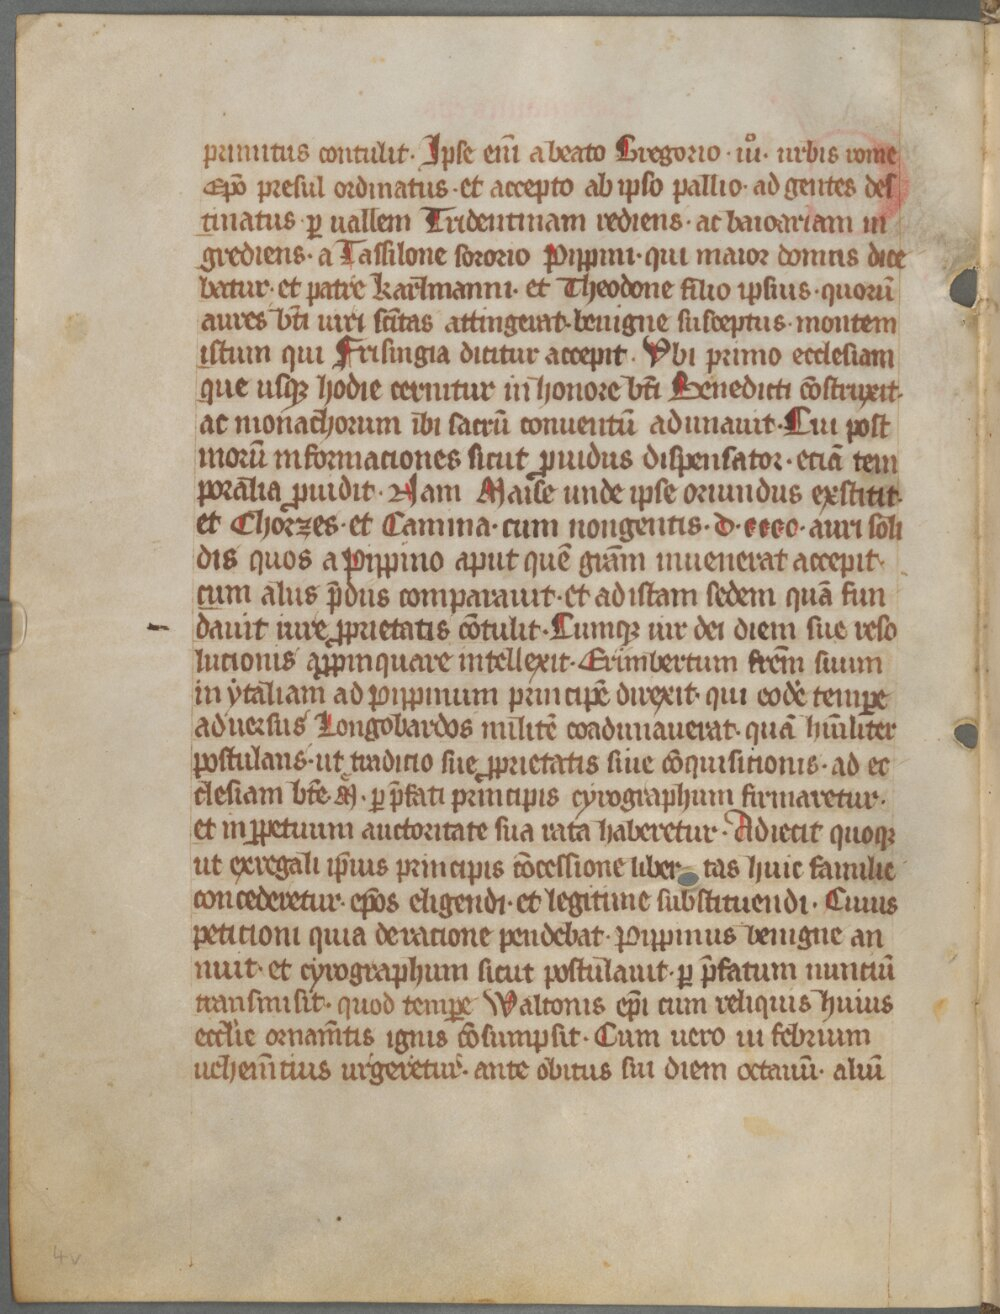 primitus contulit· Ipse eni̅ a beato Gregorio ·iiͦ· urbis rome
ep̅o presul ordinatus· et accepto ab ipso pallio· ad gentes des
tinatus ꝑ uallem Tridentinam rediens· ac baioariam in
grediens· a Tassilone sororio Pippini· qui maior domus dice
batur· et patre karlmanni· et Theodone filio ipsius· quoru̅
aures b̅ti uiri sc̅itas attingerat· benigne susceptus· montem
istum qui Frisingia dicitur accepit· Vbi primo ecclesiam
que usqꝫ hodie cernitur in honore b̅ti Benedicti co̅struxit·
ac monachorum ibi sacru̅ conuentu̅ adunauit· Cui post
moru̅ informaciones sicut ꝓuidus dispensator· ecia̅ tem
poralia ꝓuidit· Nam Maise unde ipse oriundus exstitit·
et Chorzes· et Camina· cum nongentis· D·cccc· auri soli
dis quos a Pippino aput que̅ gra̅m inuenerat accepit·
cum alijs p̅dijs comparauit· et ad istam sedem qua̅ fun
dauit iure ꝓprietatis co̅tulit· Cumqꝫ uir dei diem sue reso
lucionis aꝓpinquare intellexit· Erimbertum fr̅em suum
in ytaliam ad Pippinum principe̅ direxit· qui eode̅ temꝑe
aduersus Longobardos milite̅ coadunauerat· qua̅ hu̅ilit̅er
postulans· ut tradicio sue ꝓprietatis siue co̅quisicionis· ad ec
clesiam b̅te M̅· ꝑ p̅fati principis cyrographum firmaretur·
et in ꝑpetuum auctoritate sua rata haberetur· Adiecit quoqꝫ
ut ex regali ip̅ius principis co̅cessione liber tas huic familie
concederetur· ep̅os eligendi· et legitime substituendi· Cuius
peticioni quia de racione pendebat· Pippinus benigne an
nuit· et cyrographum sicut postulauit· ꝑ p̅fatum nunciu̅
transmisit· quod temꝑe Waltonis ep̅i cum reliquis huius
eccl̅ie ornam̅tis ignis co̅sumpsit· Cum uero ui febrium
uehem̅tius urgeretur· ante obitus sui diem octauu̅· aliu̅
4v